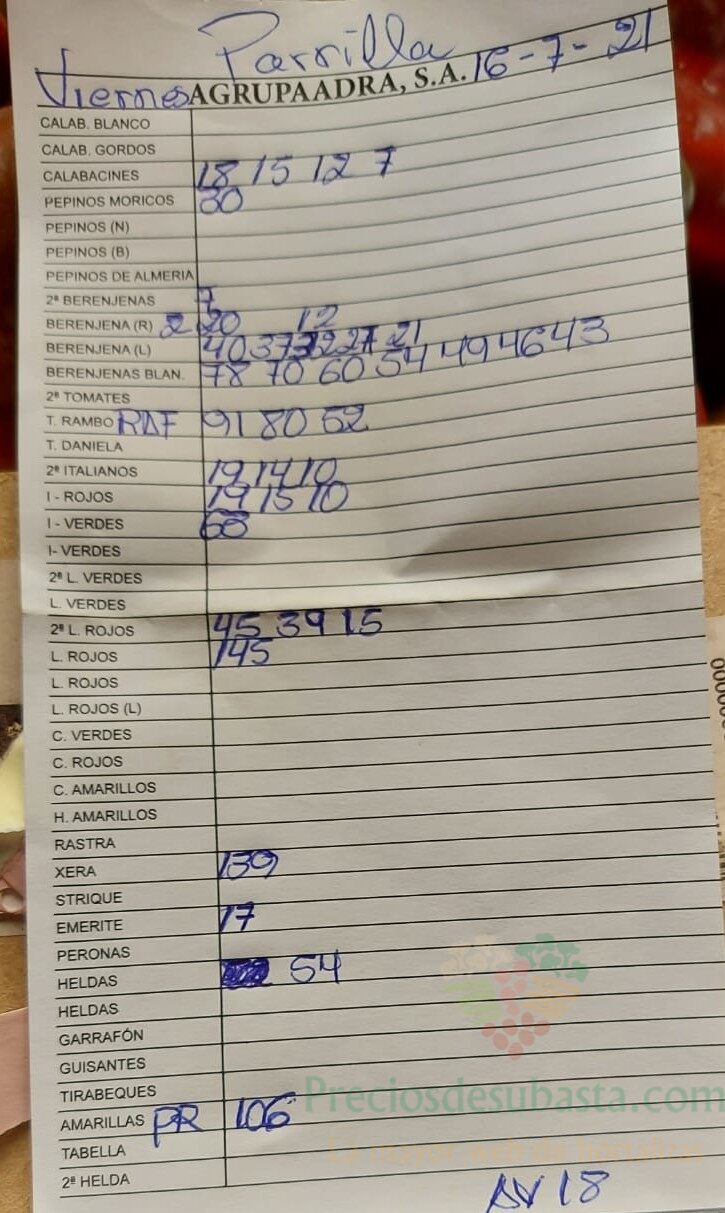 Parrilla
Viernes AGRUPAADRA, S.A. 16-7-21
CALAB. BLANCO
CALAB. GORDOS
CALABACINES 18 15 12 7
PEPINOS MORICOS 30
PEPINOS (N)
PEPINOS (B)
PEPINOS DE ALMERIA
2ª BERENJENAS 7
BERENJENA (R) 2 20 12
BERENJENA (L) 40 37 32 27 21
BERENJENAS BLAN. 78 70 60 54 49 46 43
2ª TOMATES
T. RAMBO RAF 91 80 52
T. DANIELA
2ª ITALIANOS 19 14 10
I - ROJOS 19 15 10
I - VERDES 60
I- VERDES
2ª L. VERDES
L. VERDES
2ª L. ROJOS 45 39 15
L. ROJOS 145
L. ROJOS
L. ROJOS (L)
C. VERDES
C. ROJOS
C. AMARILLOS
H. AMARILLOS
RASTRA
XERA 139
STRIQUE
EMERITE 17
PERONAS
HELDAS 54
HELDAS
GARRAFÓN
GUISANTES
TIRABEQUES
Preciosdesubasta.com
AMARILLAS PR 106
TABELLA
La mayor web de hortalizas
2ª HELDA
AV 18